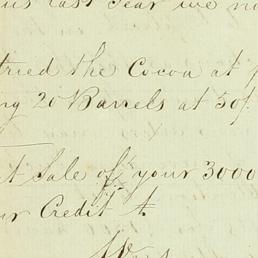 us last Year we no
tried the Cocoa at p
ng 20 Barrels at 50/.
t Sale of your 3000
ur Credit